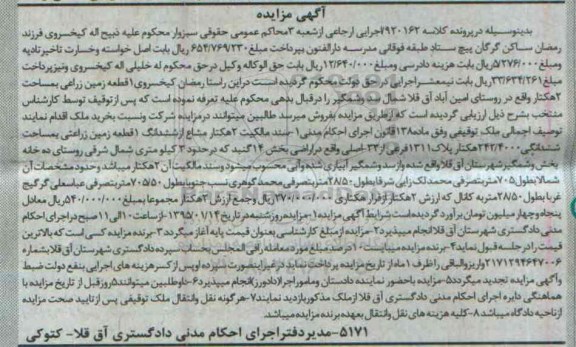 آگهی مزایده
بدینوسیله در پرونده کلاسه ۷۹۲۰۱۶۲ اجرایی ارجاعی از شعبه ۳ محاکم عمومی حقوقی سبزوار محکوم علیه ذبیح اله کیخسروی فرزند
رمضان ساکن گرگان پیچ ستاد طبقه فوقانی مدرسه دارالفنون بپرداخت مبلغ ۶۵۴/۷۶۹/۲۳۰ ریال بابت اصل خواسته وخسارت تاخیر تادیه
ومبلغ ۵۲۷۶/۰۰۰ ریال بابت هزینه دادرسی ومبلغ ۱۲/۶۴۰/۰۰۰ ریال بابت حق الوکاله وکیل در حق محکوم له خلیلی اله کیخسروی ونیز پرداخت
مبلغ ۳۲/۶۳۴/۲۶۱ ریال بابت نیمعشر اجرایی در حق دولت محکوم گردیده است در این راستا رمضان کیخسروی ۱ قطعه زمین زراعی بمساحت
۲ هکتار واقع در روستای امین آباد آق قلا شمال سد وشمگیر را در قبال بدهی محکوم علیه تعرفه نموده است که پس از توقیف توسط کارشناس
منتخب بشرح ذیل ارزیابی گردیده است که از طریق مزایده بفروش میرسد طالبین میتوانند در مزایده شرکت ونسبت بخرید ملک اقدام نمایند
توصیف اجمالی ملک توقیفی وفق ماده ۱۳۸ قانون اجرای احکام مدنی ۱-سند مالکیت ۲ هکتار مشاع از ششدانگ ۱ قطعه زمین زراعی بمساحت
ششدانگی ۲۴۲/۴۰۰۰ هکتار پلاک ۱۳۱۱ فرعی از ۳۳-اصلی واقع در اراضی بخش ۱۴ گنبد که در حدود ۳ کیلو متری شمال شرقی روستای ده خانه
بخش وشمگیر شهرستان آق قلا واقع شده واز سد وشمگیر آبیاری شده وآبی محسوب میشود وسند مالکیت آن ۲ هکتار میباشد وحدود مشخصات آن
شمالا بطول ۷۰۵ متر بتصرفی محمد لک زایی شرقا بطول ۲۸/۵۰ متر بتصرفی محمد گوهری نسب جنوبا بطول ۷۰۵/۵۰ متر بتصرفی عباسعلی گرگیج
غربا بطول ۲۸/۵۰ متر به کانال که ارزش ۲ هکتار از قرار هکتاری ۲۷۰/۰۰۰/۰۰۰ ریال وجمع ارزش ۲ هکتار مجموعا بمبلغ ۵۴۰/۰۰۰/۰۰۰ ریال معادل
پنجاه وچهار میلیون تومان برآورد گردیده است شرایط آگهی مزایده ۱-مزایده روز شنبه در تاریخ ۱۳۹۵/۰۱/۱۴ از ساعت ۱۰ الی ۱۱ صبح در اجرای احکام
مدنی دادگستری شهرستان آق قلا انجام میپذیرد ۲-مزایده از مبلغ کارشناسی بعنوان قیمت پایه آغاز میگردد ۳-برنده مزایده کسی است که بالاترین
قیمت را در جلسه قبول نماید ۴-برنده مزایده میبایست ۱۰ درصد مبلغ مورد معامله را فی المجلس بحساب سپرده دادگستری شهرستان آق قلا بشماره
۲۱۷۱۲۹۴۶۴۷۰۰۶ واریز والباقی را ظرف ۱ ماه از تاریخ مزایده پرداخت نماید در غیر اینصورت سپرده او پس از کسر هزینه های اجرایی بنفع دولت ضبط
وآگهی مزایده تجدید میگردد ۵-مزایده باحضور نماینده دادستان ومامور اجرا (دادورز) انجام میپذیرد ۶-داوطلبین میتوانند ۵ روز قبل از تاریخ مزایده با
هماهنگی دایره اجرای احکام مدنی دادگستری آق قلا از ملک مذکور بازدید نمایند ۷-هر گونه نقل وانتقال ملک توقیفی پس از تایید صحت مزایده
از ناحیه دادگاه میباشد ۸-کلیه هزینه های نقل وانتقال بعهده برنده مزایده میباشد.
۵۱۷۱-مدیر دفتر اجرای احکام مدنی دادگستری آق قلا- کتوکی